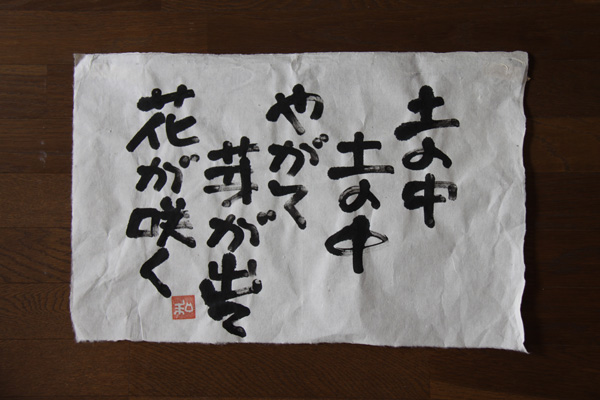 土の中
土の中
やがて
芽が出て
花が咲く
和